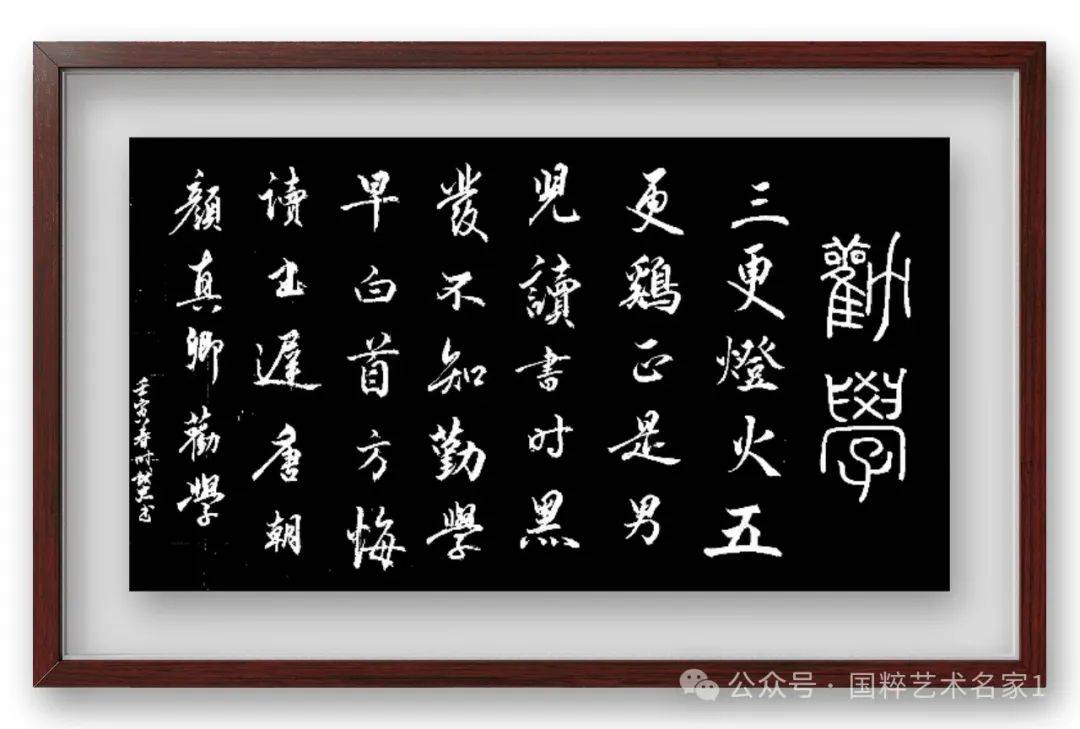 勸學
三更燈火五
更鷄正是男
児讀書时黑
發不知勤學
早白首方悔
读书遲唐朝
顏真卿勸學
壬寅春时
公众号·国粹艺术名家1